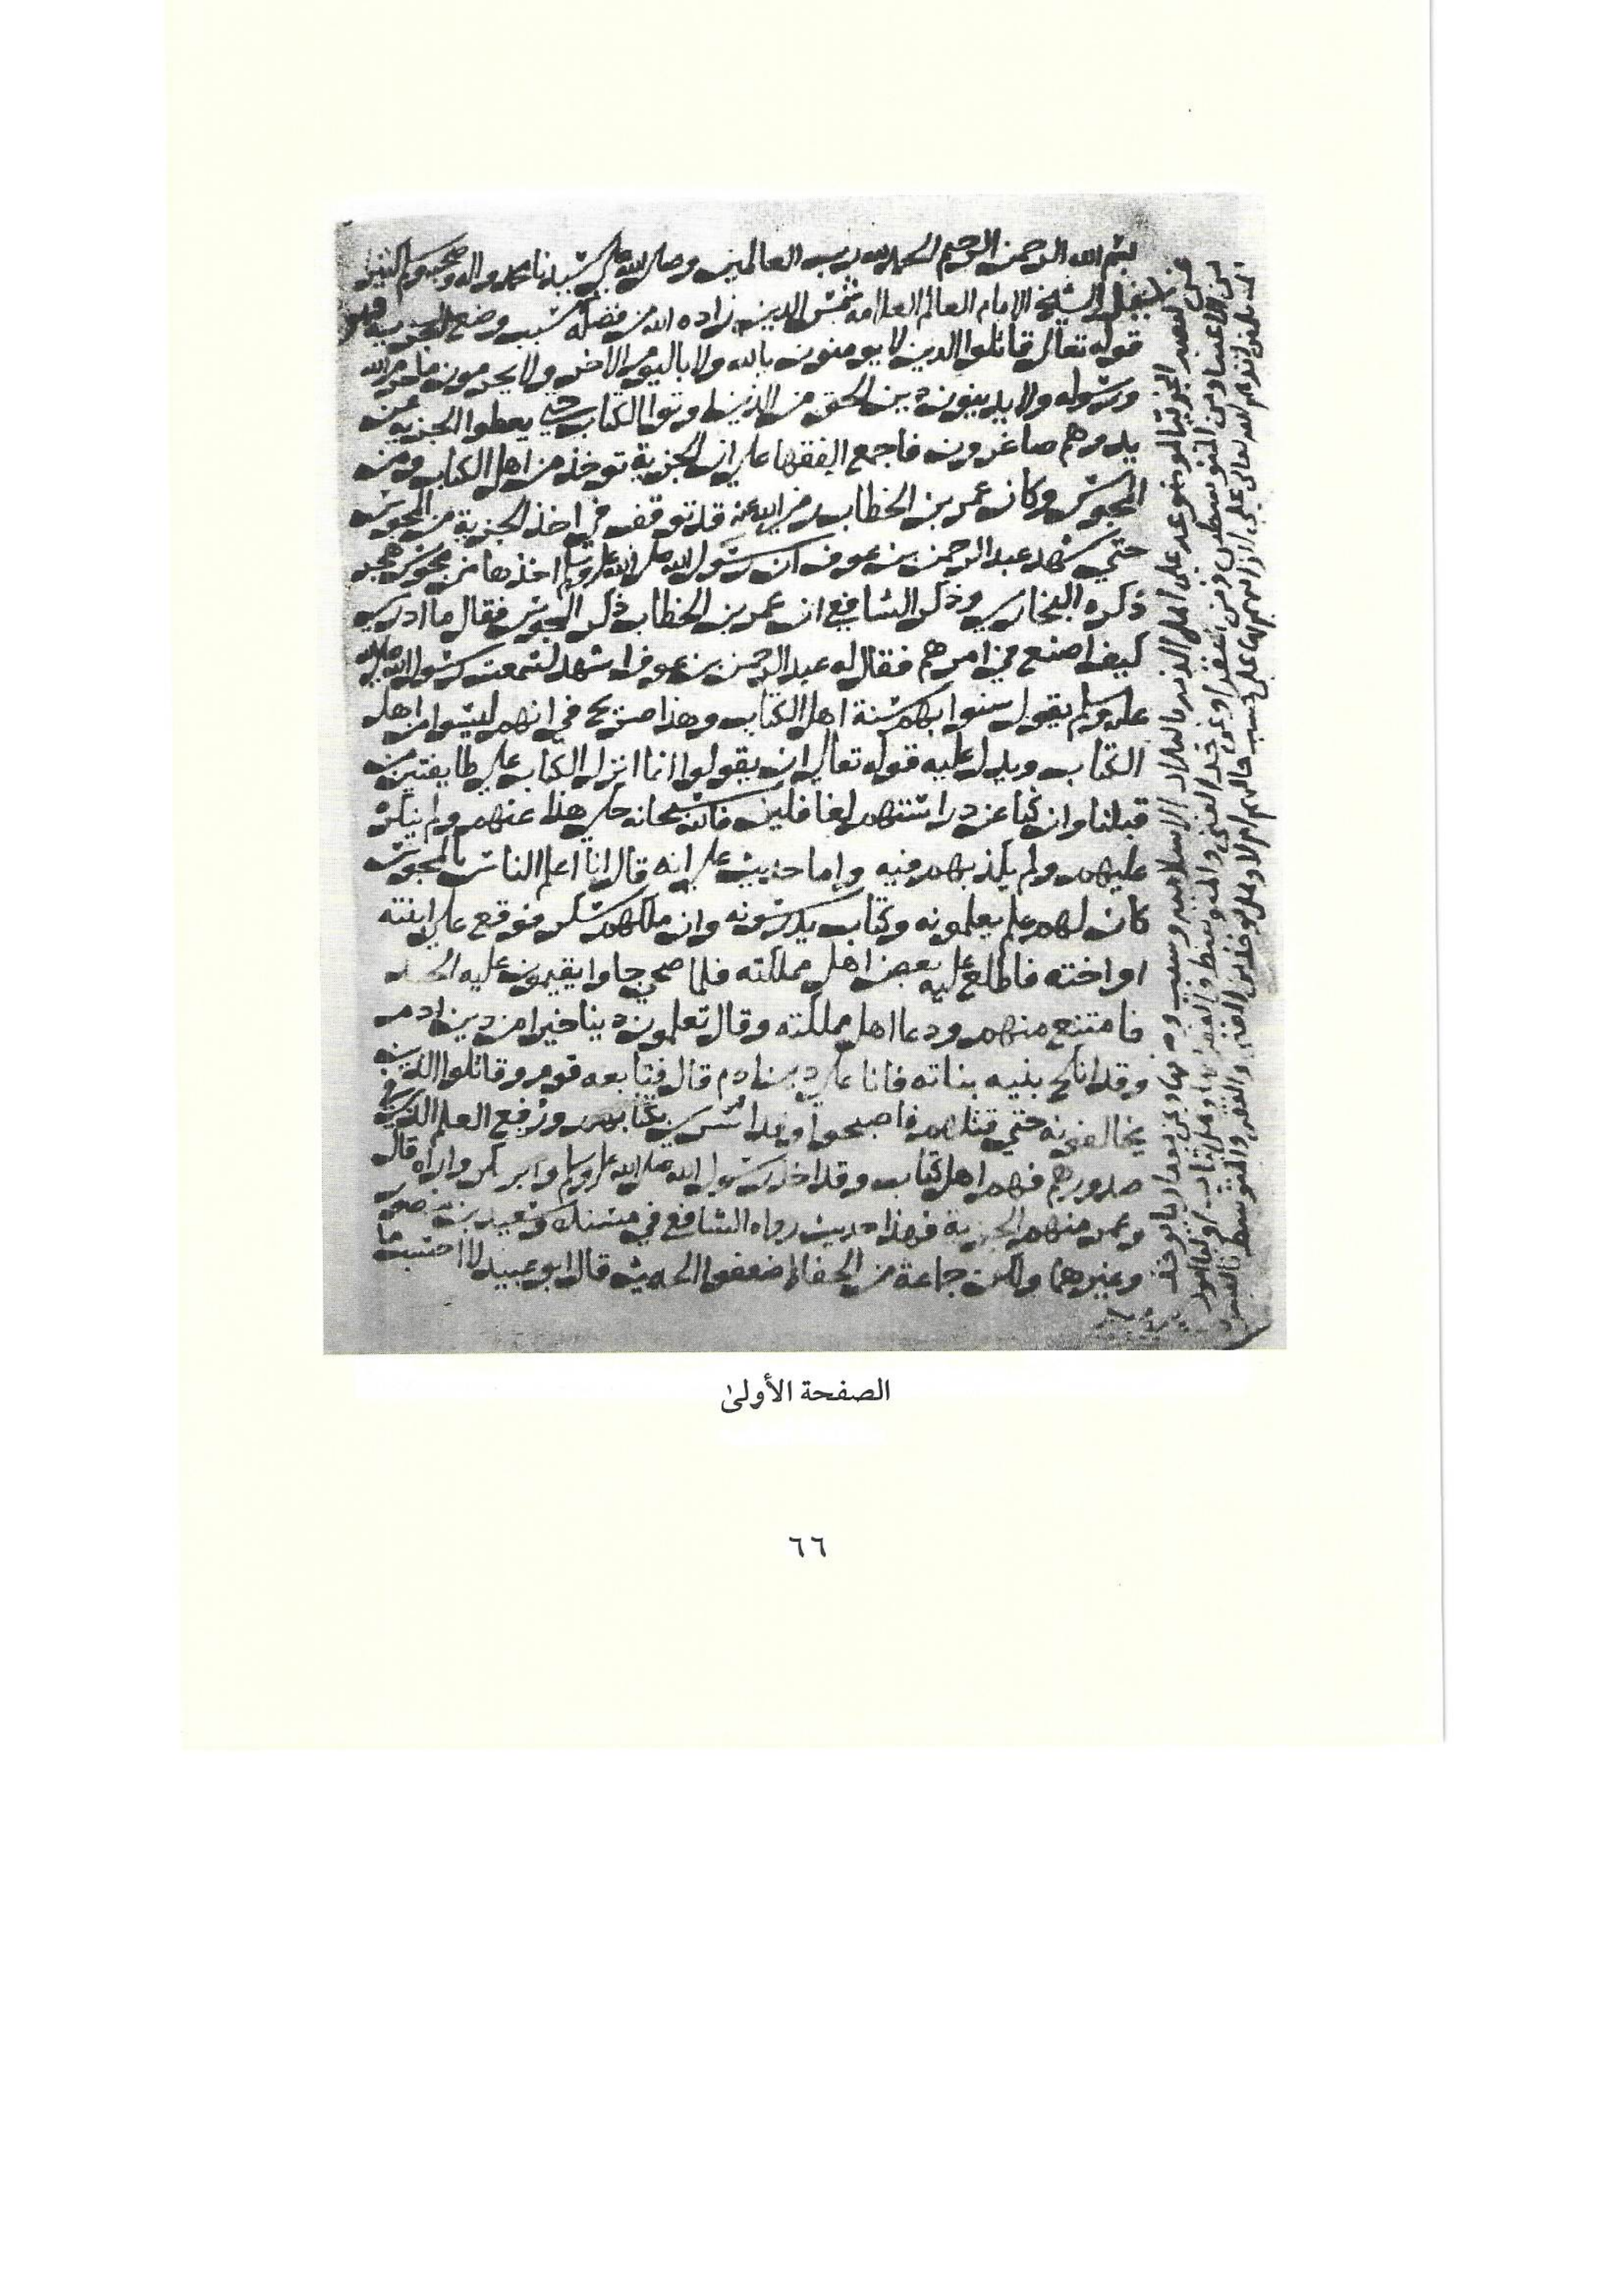 بسم الله الرحمن الرحيم الحمد لله رب العالمين وصلى الله على سيدنا محمد واله وصحبه وسلم
الشيخ الامام العالم العلامه شمس الدين زاده الله من فضله سبب وضع الجزيه
قوله تعالى قاتلوا الذين لا يومنون بالله ولا باليوم الاخر ولا يحرمون ما حرم الله
ورسوله ولا يدينون دين الحق من الذين اوتوا الكتاب حتى يعطوا الجزيه عن
يد وهم صاغرون فاجمع الفقها على ان الجزية توخذ من اهل الكتاب ومن
المجوس وكان عمر بن الخطاب رضي الله عنه قد توقف في اخذ الجزية من المجوس
حتى شهد عبد الرحمن بن عوف ان رسول الله صلى الله عليه وسلم اخذها من مجوس هجر
ذكره البخاري وذكر الشافعي ان عمر بن الخطاب ذكر المجوس فقال ما ادري
كيف اصنع في امرهم فقال له عبد الرحمن بن عوف اشهد لسمعت رسول الله صلى الله
عليه وسلم يقول سنوا بهم سنة اهل الكتاب وهذا صريح في انهم ليسوا من اهل
الكتاب ويدل عليه قوله تعالى ان يقولوا انما انزل الكتاب على طايفتين من
قبلنا وان كنا عن دراستهم لغافلين فالله سبحانه حكى هذا عنهم ولم ينكره
عليهم ولم يكذبهم فيه واما حديث علي انه قال انا اعلم الناس بالمجوس
كان لهم علم يعلمونه وكتاب يدرسونه وان ملكهم سكر فوقع على ابنته
او اخته فاطلع عليه بعض اهل مملكته فلما صحى جاوا يقيمون عليه الحد
فامتنع منهم ودعا اهل مملكته وقال تعلمون دينا خيرا من دين ادم
وقد انكح بنيه بناته فانا على دين ادم قال فتابعه قوم وقاتلوا الذين
يخالفونه حتى قتلهم فاصبحوا وقد اسري بكتابهم ورفع العلم الذي في
صدورهم فهم اهل كتاب وقد اخذ رسول الله صلى الله عليه وسلم وابو بكر واراه قال
وعمر منهم الجزية فهذا حديث رواه الشافعي في مسنده وسعيد بن منصور
وغيرهما ولكن جماعة من الحفاظ ضعفوا الحديث قال ابو عبيد لا احسب ما
الصفحة الأولى
٦٦